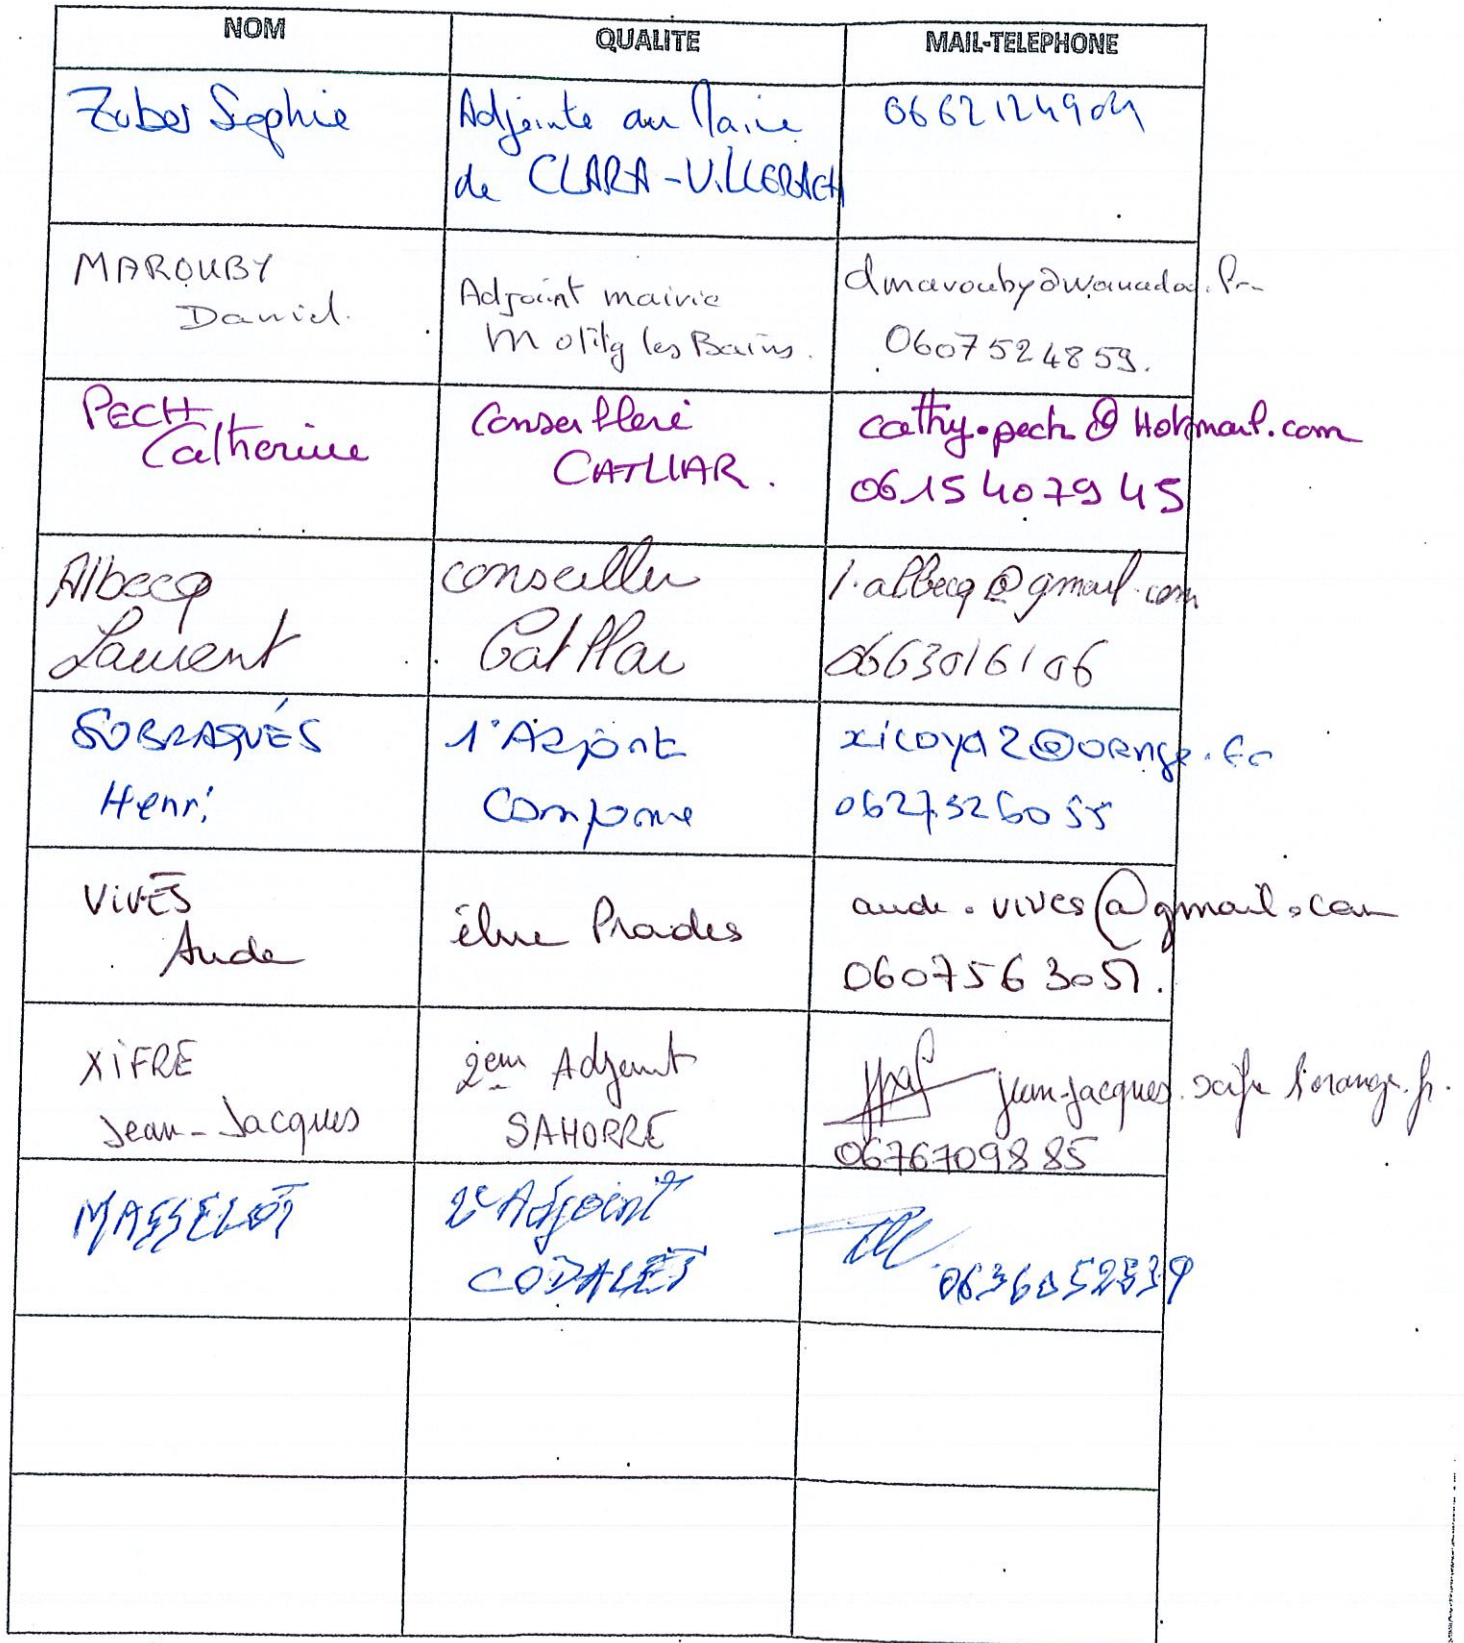 NOM QUALITE MAIL-TELEPHONE
Zuber Sophie
Adjointe au Maire
de CLARA-VILLERACH
MAROUBY
Daniel.
Adjoint mairie
Molitg les Bains.
dmarouby@wanadoo.fr
0607524859.
PECH
Catherine
Conseillère
CATLLAR.
cathy.pech@Hotmail.com
0615407945
Albecq
Laurent
conseiller
Catllar
l.albecq@gmail.com
0663016106
SOBRAQUÉS
Henri
1° Adjoint
Campome
xicoya2@orange.fr
0627326055
VIVÈS
Aude
élue Prades
aude.vives@gmail.com
0607563051.
XIFRE
Jean-Jacques
2em Adjoint
SAHORRE
jean-jacques.xifre
orange.fr.
0676709885
MASSELOT
2e Adjoint
CODALET